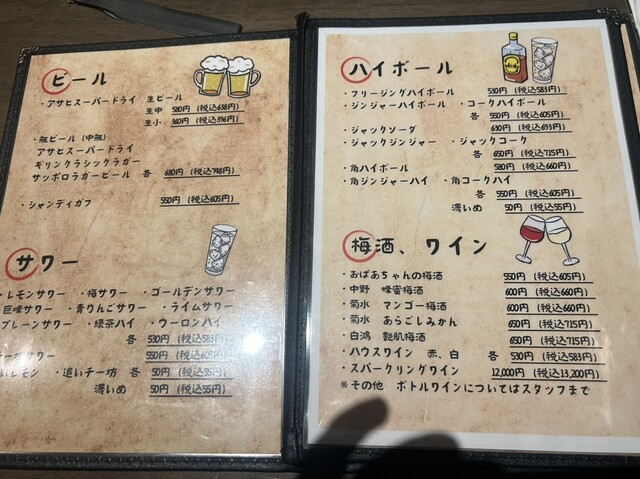 ビール
・アサヒスーパードライ 生ビール
生中 580円 (税込638円)
生小 360円 (税込396円)
・瓶ビール (中瓶)
アサヒスーパードライ
キリンクラシックラガー
サッポロラガービール 各 680円 (税込748円)
・シャンディガフ 550円 (税込605円)
サワー
・レモンサワー ・梅サワー ・ゴールデンサワー
巨峰サワー ・青りんごサワー ・ライムサワー
プレーンサワー ・緑茶ハイ ・ウーロンハイ
各 530円 (税込583円)
サワー 550円 (税込605円)
レモン ・追いチー坊 各 50円 (税込55円)
濃いめ 50円 (税込55円)
ハイボール
・フリージングハイボール 530円 (税込583円)
・ジンジャーハイボール ・コークハイボール
各 550円 (税込605円)
・ジャックソーダ 630円 (税込693円)
・ジャックジンジャー ・ジャックコーク
各 650円 (税込715円)
・角ハイボール 580円 (税込660円)
・角ジンジャーハイ ・角コークハイ
各 550円 (税込605円)
濃いめ 50円 (税込55円)
梅酒、ワイン
・おばあちゃんの梅酒 550円 (税込605円)
・中野 蜂蜜梅酒 600円 (税込660円)
・菊水 マンゴー梅酒 600円 (税込660円)
・菊水 あらごしみかん 650円 (税込715円)
・白鴻 艶肌梅酒 650円 (税込715円)
・ハウスワイン 赤、白 各 530円 (税込583円)
・スパークリングワイン 12,000円 (税込13,200円)
※その他 ボトルワインについてはスタッフまで